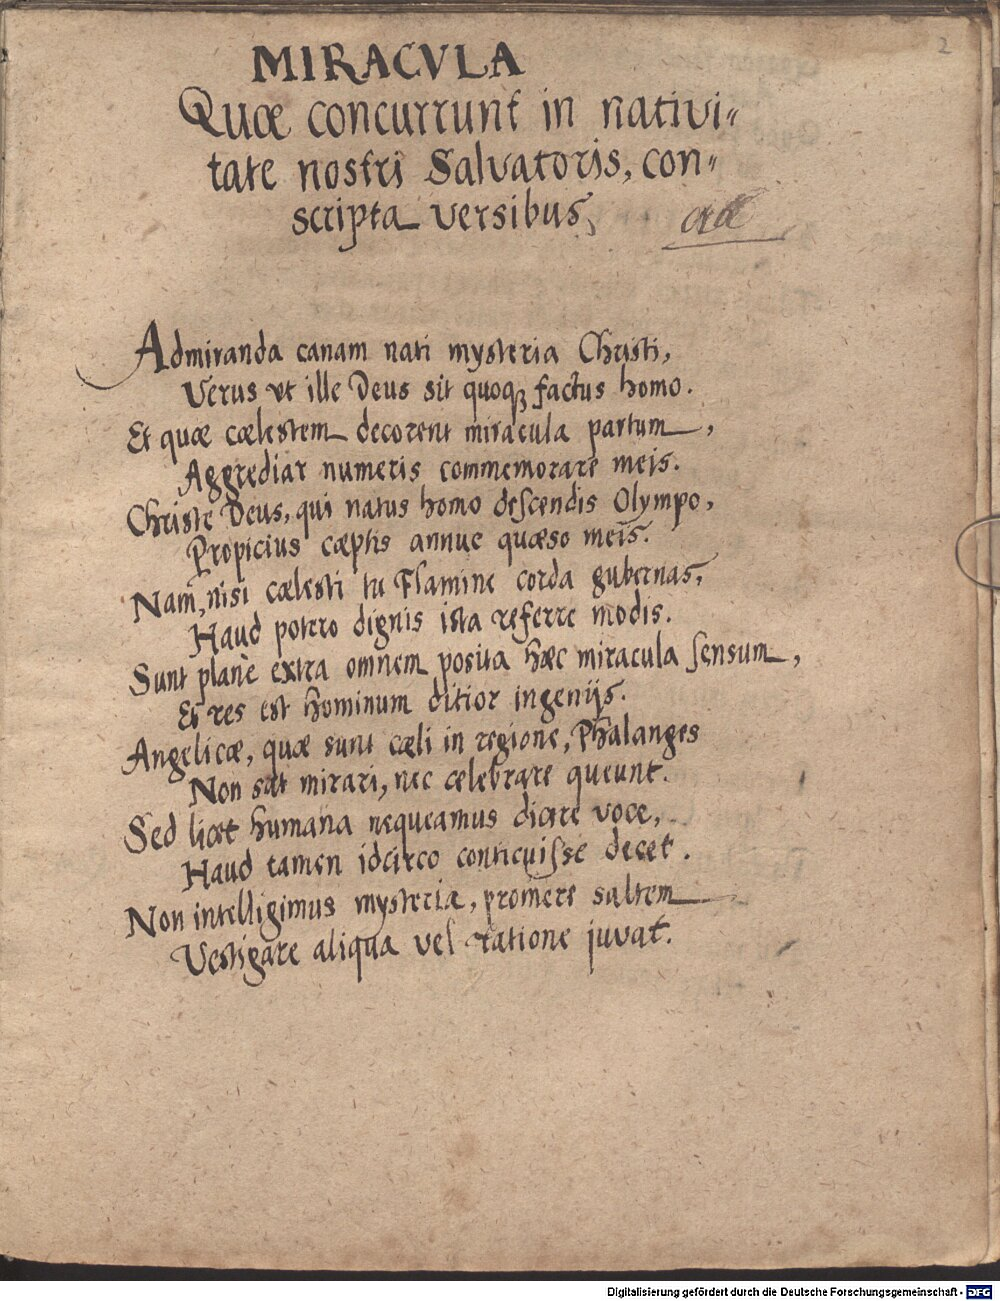 2
MIRACVLA
Quæ concurrunt in nativi〃
tate nostri Salvatoris, con〃
scripta versibus,
Admiranda canam nati mysteria Christi,
Verus vt ille Deus sit quoqꝫ factus homo.
Et quæ cælestem decorent miracula partum,
Aggrediar numeris commemorare meis.
Christe Deus, qui natus homo descendis Olympo,
Propicius cæptis annue quæso meis.
Nam, nisi cælesti tu Flamine corda gubernas,
Haud potero dignis ista referre modis.
Sunt planè extra omnem posita hæc miracula sensum,
Et res est hominum ditior ingenijs.
Angelicæ, quæ sunt cæli in regione, Phalanges
Non sat mirari, nec celebrare queunt.
Sed licet humana nequeamus dicere voce,
Haud tamen idcirco conticuisse decet.
Non intelligimus mysteria, promere saltem
Vestigare aliqua vel ratione juvat.
Digitalisierung gefördert durch die Deutsche Forschungsgemeinschaft - DFG